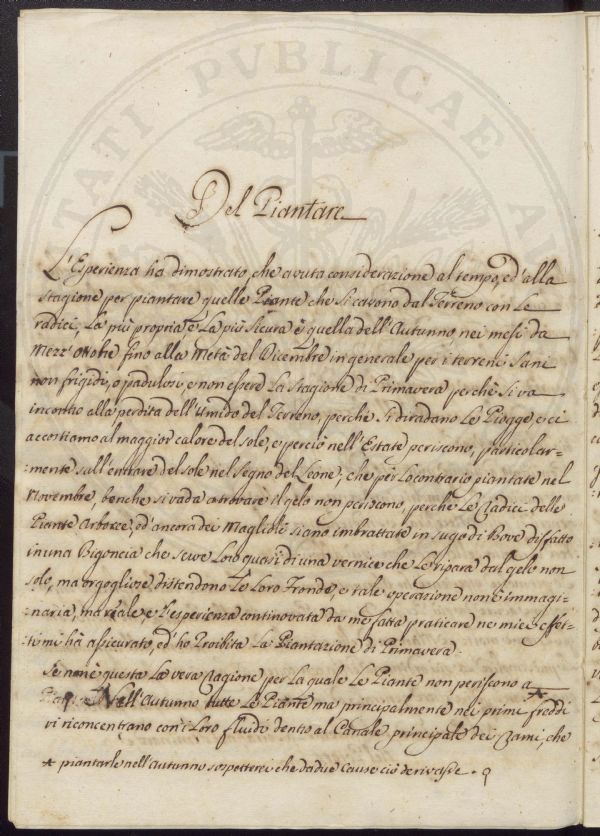 Del Piantare
L'Esperienza ha dimostrato, che avuta considerazione al tempo, ed' alla
stagione per piantare quelle Piante che si cavano dal Terreno con Le
radici, La più propria, e La più sicura è quella dell'Autunno, nei mesi da
Mezz' ottobre fino alla Metà del Dicembre in generale per i terreni sani
non frigidi, o padulosi, e non essere La stagione di Primavera perchè si va
incontro alla perdita dell'Umido del Terreno, perchè si diradano Le Piogge, e ci
accostiamo al maggior calore del sole, e perciò nell'Estate periscono, particolar=
=mente sull'entrare del sole nel segno del Leone; che per Lo contrario piantate nel
Novembre, benche si vada a trovare il gelo non periscono, perchè Le Radici delle
Piante Arboree, ed' ancora dei Magliòli siano imbrattate in sugo di Bove disfatto
in una Bigoncia che serve Loro quasi di una vernice che Le ripara dal gelo non
solo, ma orgogliose distendono Le Loro Fronde, e tale operazione non è immagi=
=naria, ma reale, e L'esperienza continovata da me fatta praticare ne miei effet=
=ti mi hà assicurato, ed' ho Proibita La Piantazione di Primavera.
Se non è questa La vera Ragione per La quale Le Piante non periscono a *
Nell'Autunno tutte Le Piante ma principalmente nei primi freddi
vi riconcentrano con i Loro fluidi dentro al Canale principale dei Rami, che
* piantarle nell'Autunno sospetterei che da due Cause ciò derivasse.